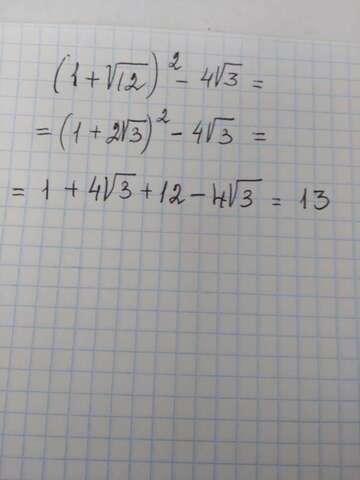 (1 + √12)² - 4√3 =
= (1 + 2√3)² - 4√3 =
= 1 + 4√3 + 12 - 4√3 = 13